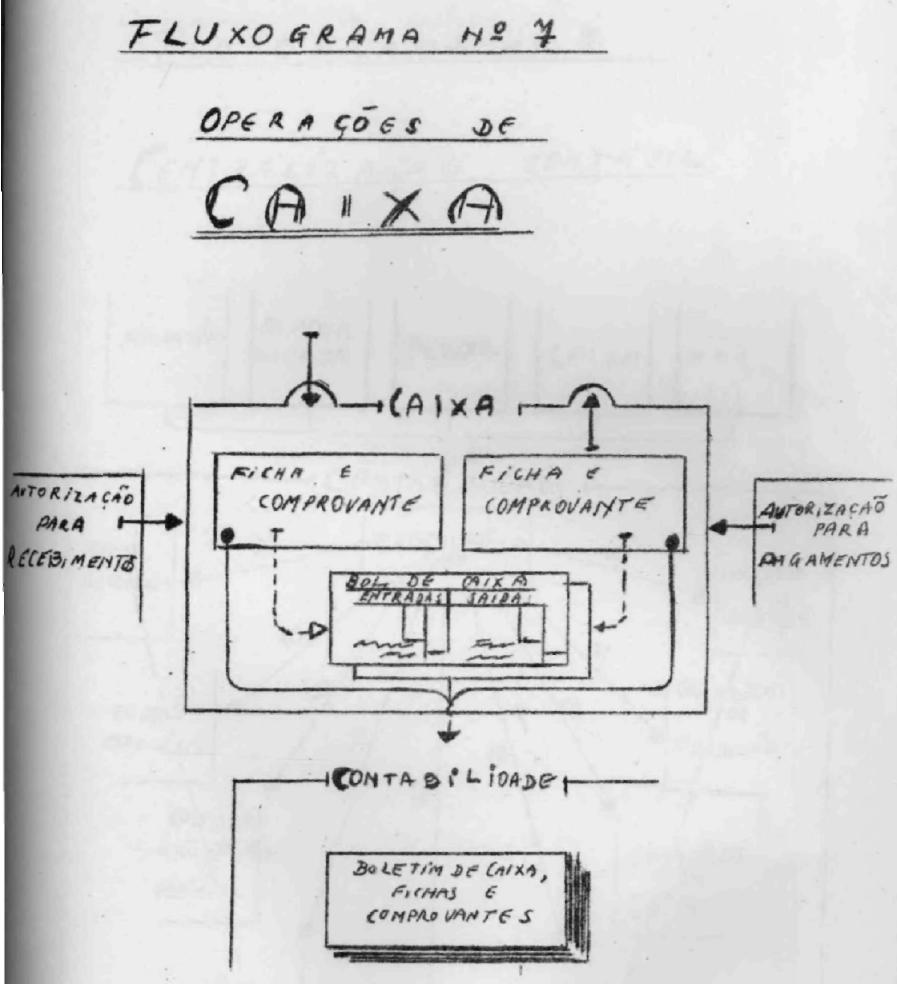 FLUXOGRAMA Nº 7
OPERAÇÕES DE
CAIXA
CAIXA
FICHA E
COMPROVANTE
FICHA E
COMPROVANTE
AUTORIZAÇÃO
PARA
RECEBIMENTOS
AUTORIZAÇÃO
PARA
PAGAMENTOS
BOL. DE CAIXA
ENTRADAS SAIDAS
CONTABILIDADE
BOLETIM DE CAIXA,
FICHAS E
COMPROVANTES